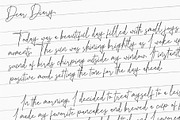 Dear Diary,
Today was a beautiful day filled with small joys
moments. The sun was shining brightly as I woke up
sound of birds chirping outside my window. It instantly
positive mood, setting the tone for the day ahead.
In the morning, I decided to treat myself to a leis
I made my favorite pancakes and brewed a cup of